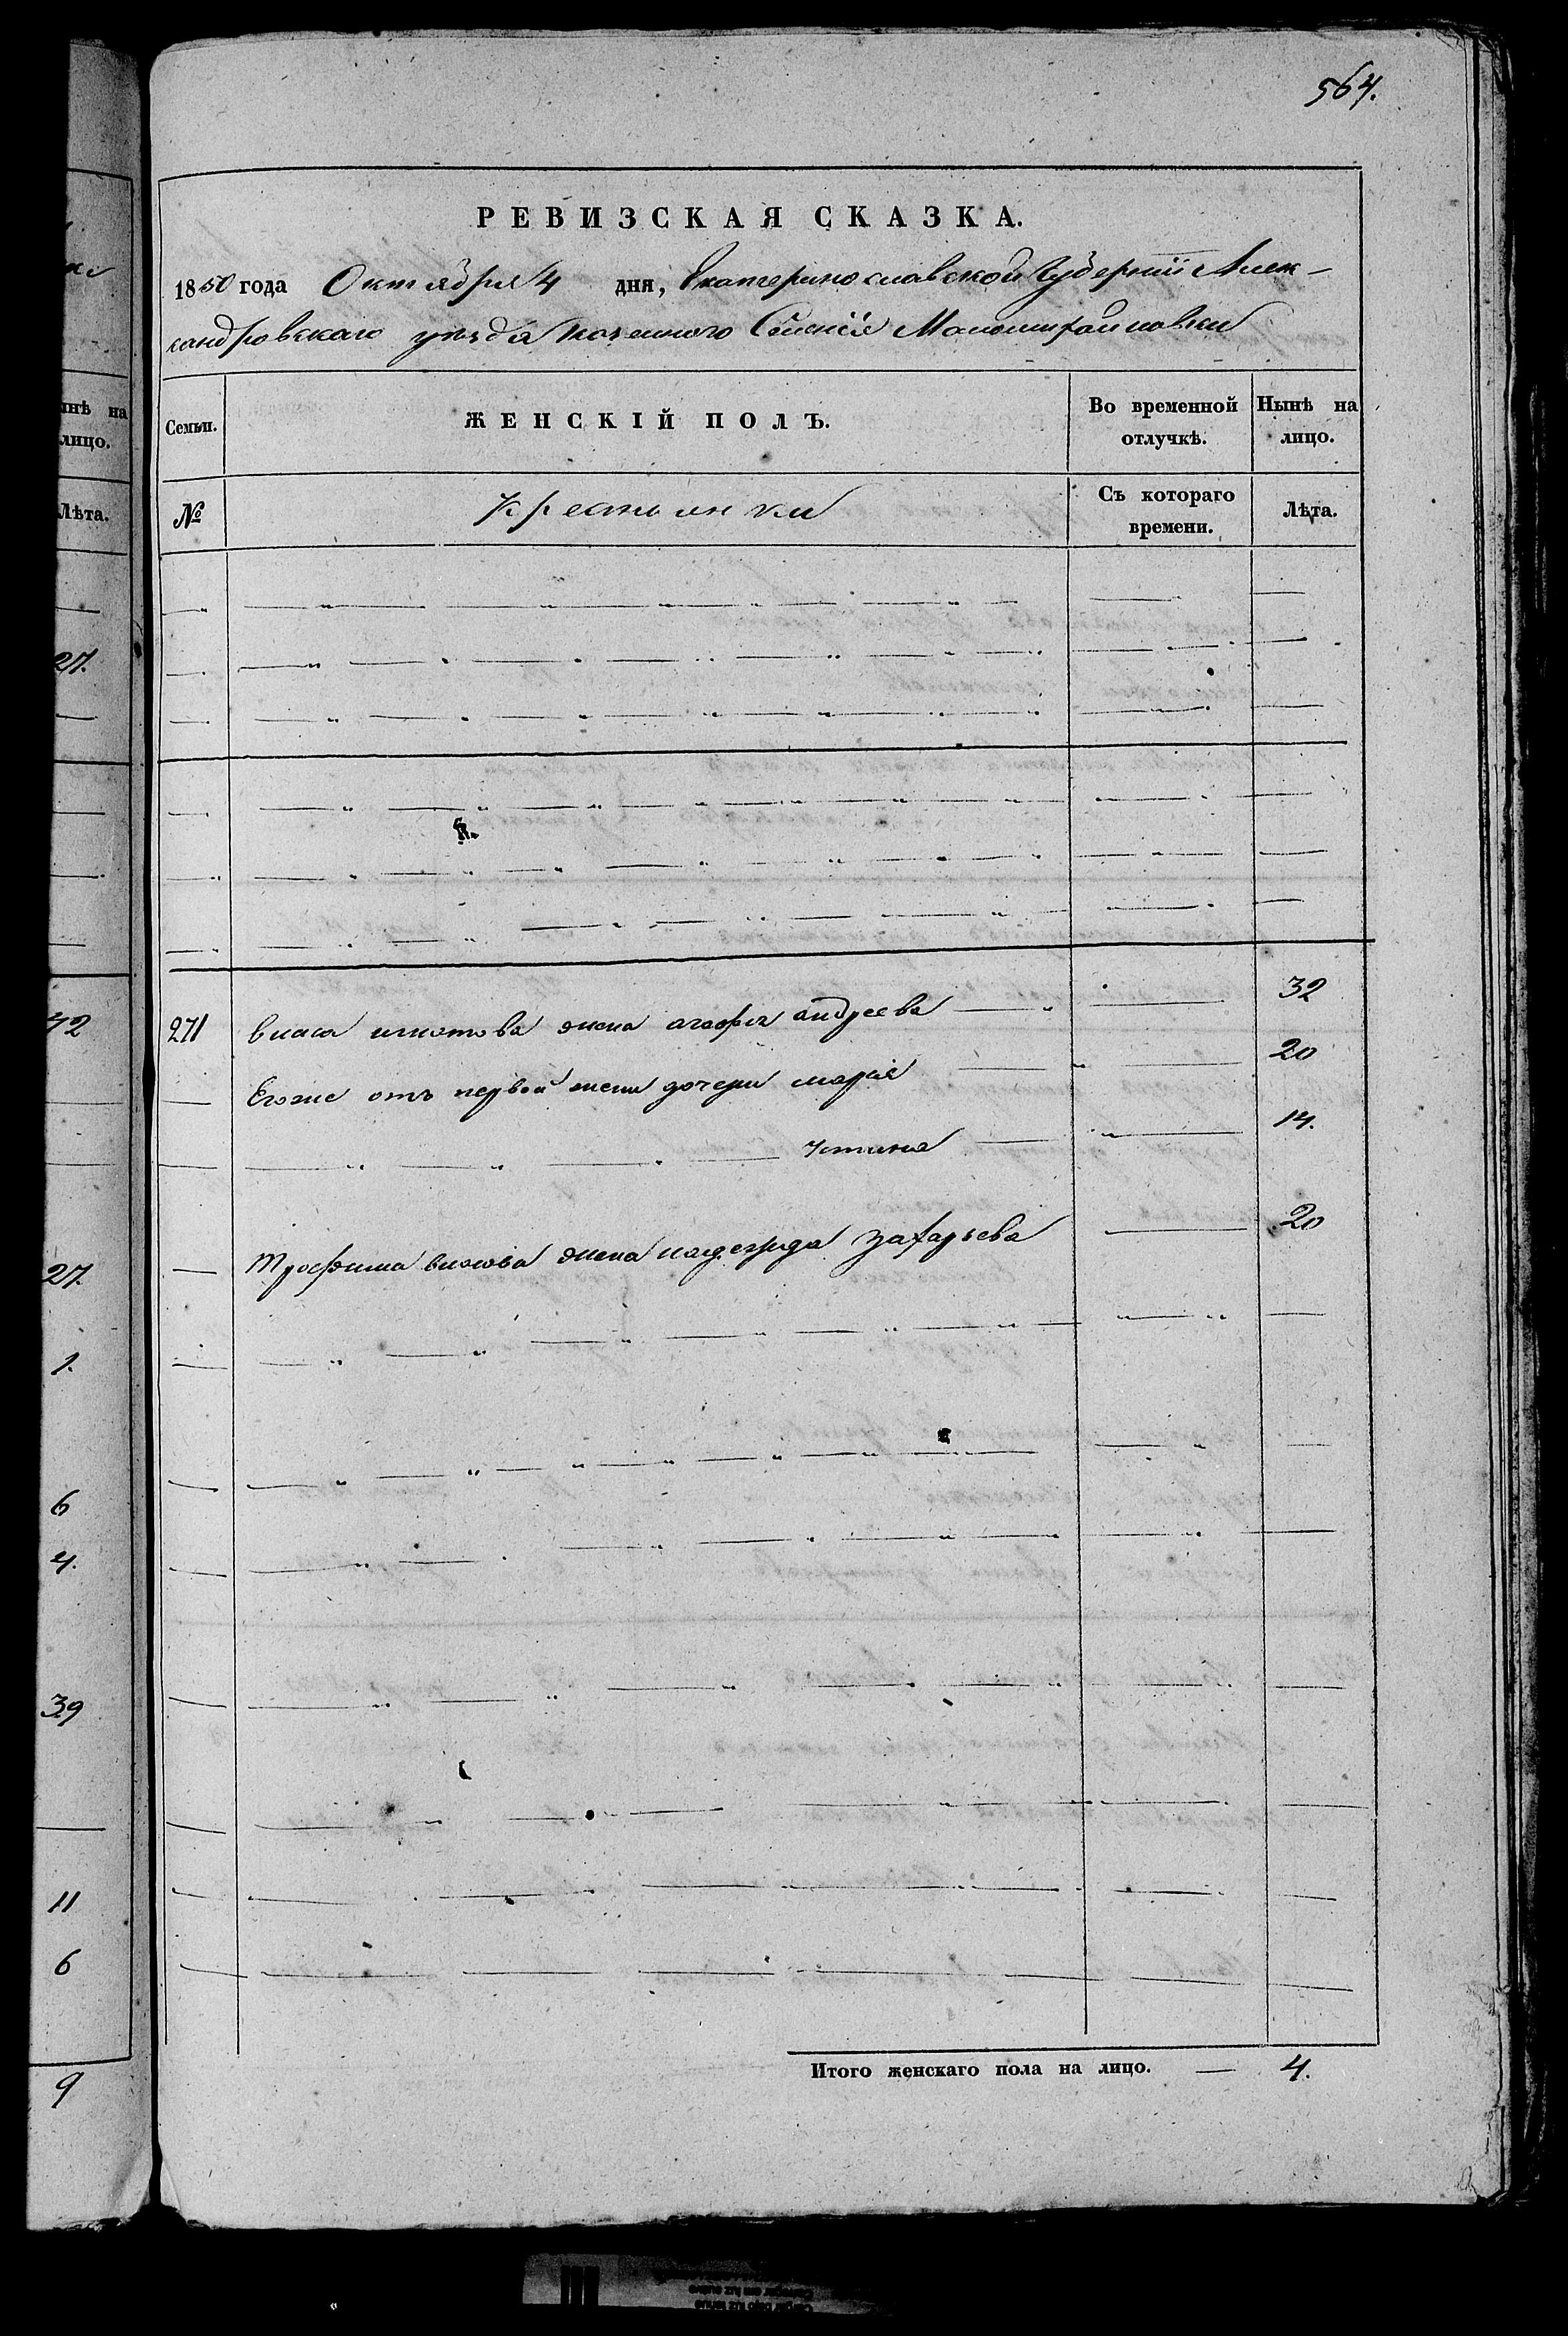 564.
РЕВИЗСКАЯ СКАЗКА.
1850 года Октября 4 дня, Екатеринославской Губернии Алек-
сандровскаго уезда казенного Селения Маломихайловки
Семьи.
ЖЕНСКІЙ ПОЛЪ.
Во временной отлучкѣ.
Нынѣ на лицо.
№
Крестьянки
Съ котораго времени.
Лѣта.
271 власа игнатова жена агафия андреева 32
Егоже отъ первой жены дочери мария 20
устина 14.
Трофима власова жена надежда захарьева 20
Итого женскаго пола на лицо. — 4.
нѣ на
лицо.
Лѣта.
27.
42
27.
1.
6
4.
39
11
6
9